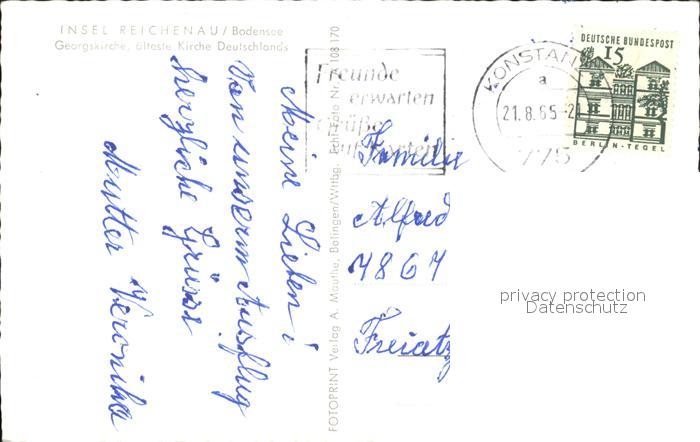 INSEL REICHENAU / Bodensee
Georgskirche, älteste Kirche Deutschlands
Meine Lieben!
Von unserm Ausflug
herzliche Grüsse
Mutter Veronika
FOTOPRINT Verlag A. Mauthe, Balingen/Wttbg. Echt Foto Nr. 108 170
Freunde
erwarten
Grüße
auf Karten
KONSTANZ
a
21.8.65-21
775
DEUTSCHE BUNDESPOST
15
BERLIN-TEGEL
Familie
Alfred
7867
privacy protection
Datenschutz